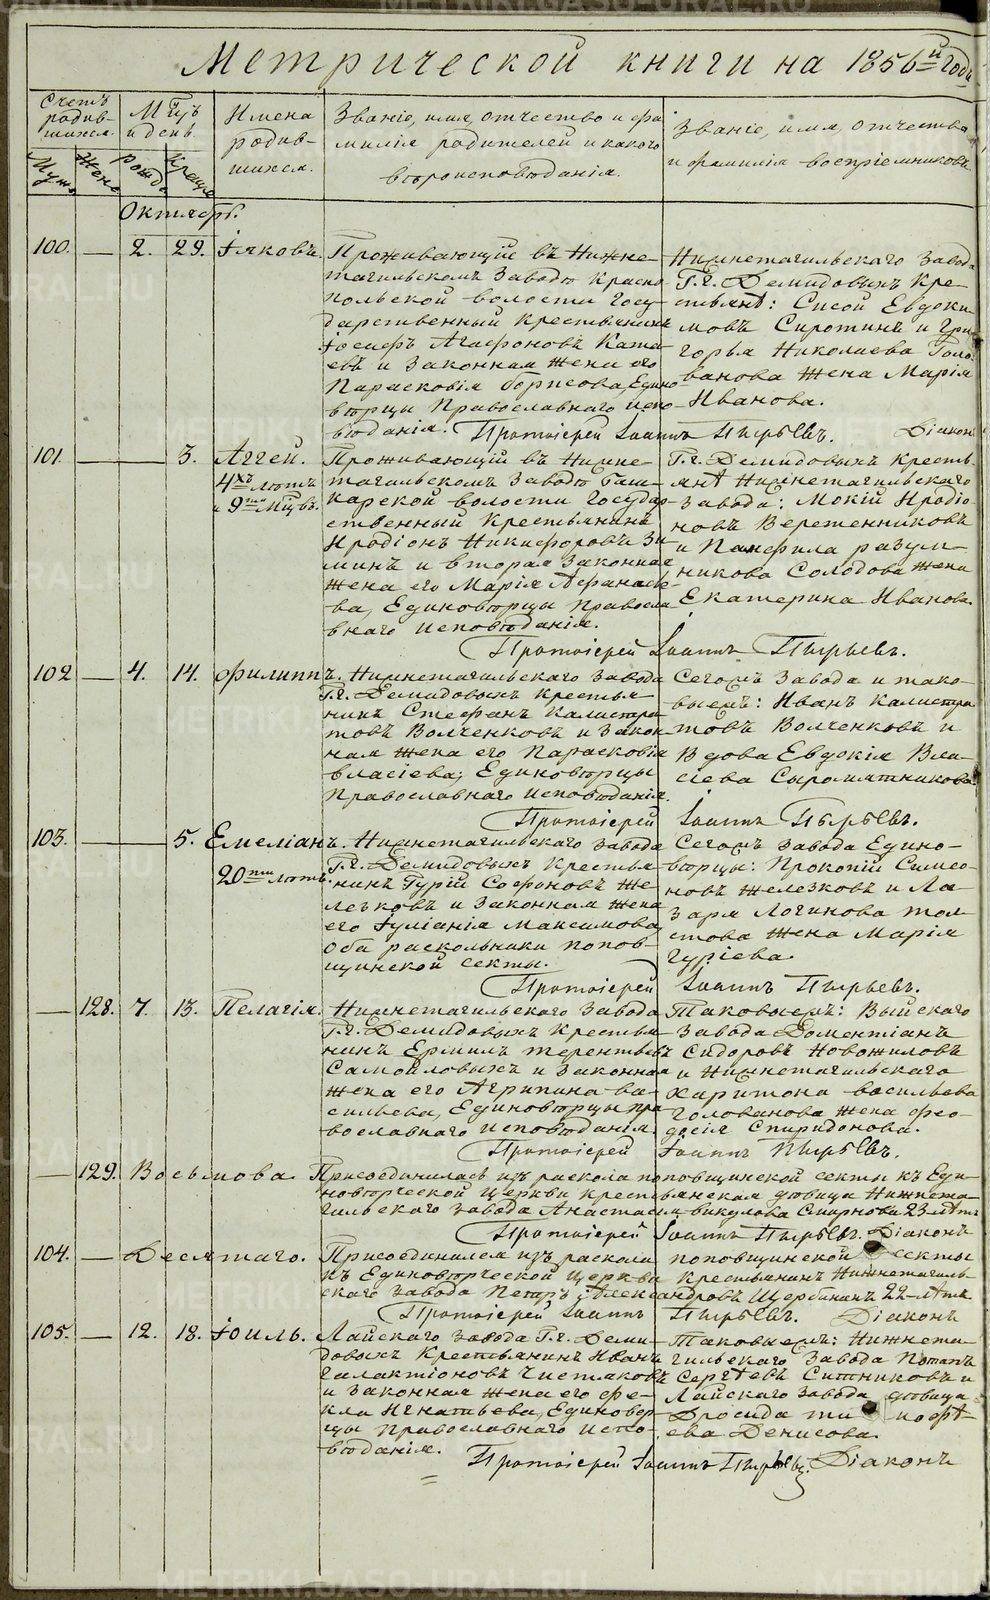 Метрической книги на 1856й годъ
Счетъ родив-шихся.
Мѣцъ и день
Имена родив-шихся.
Званіе, имя, отчество и фа-
милія родителей и какого
вѣроисповѣданія.
Званіе, имя, отчество
и фамилія воспріемниковъ
Муж. Жен. Рожд. Крещ.
Октябрь.
100. — 2. 29. Іяковъ.
Проживающій въ Нижне-
тагильскомъ Заводѣ Красно
польской волости Госу-
дарственный Крестьянинъ
Іосифъ Агафоновъ Ката-
евъ и Законная жена его
Парасковія Борисова, Едино
вѣрцы Православнаго испо-
вѣданія.
Нижнетагильскаго Завода
Г.г. Демидовыхъ Кре-
стьянѣ: Сисой Евдоки-
мовъ Сиротинъ и Гри-
горья Николаева Голо-
ванова жена Марія
Иванова.
Протоіерей Іоаннъ Пырьевъ. Діаконъ
101. — — 3. Аггей.
4хъ лѣтъ
и 9ти Мѣцъ.
Проживающій въ Нижне-
тагильскомъ Заводѣ Баш-
карской волости Государ
ственный Крестьянинъ
Иродіонъ Никифоровъ Зи
минъ и вторая Законная
жена его Марія Афанасье-
ва, Единовѣрцы Правосла
внаго исповѣданія.
Г.г. Демидовыхъ Кресть-
янѣ Нижнетагильскаго
Завода: Мокій Иродіо
новъ Веретенниковъ
и Панфила разум-
никова Солодова жена
Екатерина Иванова.
Протоіерей Іоаннъ Пырьевъ.
102 — 4. 14. Филиппъ.
Нижнетагильскаго Завода
Г.г. Демидовыхъ Крестья-
нинъ Стефанъ Калистра
товъ Волченковъ и Закон-
ная жена его Парасковія
Власіева, Единовѣрцы
Православнаго исповѣданія.
Сегожъ Завода и тако-
выежъ: Иванъ Калистра
товъ Волченковъ и
Вдова Евдокія Вла-
сіева Сыромятникова
Протоіерей Іоаннъ Пырьевъ.
103. — — 5. Емеліанъ.
20ти лѣтъ.
Нижнетагильскаго Завода
Г.г. Демидовыхъ Крестья-
нинъ Гурій Софоновъ Же
лезковъ и Законная жена
его Іуліанія Максимова,
оба раскольники попов-
щинской секты.
Сегожъ Завода Едино-
вѣрцы: Прокопій Симео-
новъ Железковъ и Ла-
заря Логинова тол-
стова жена Марія
Гуріева.
Протоіерей Іоаннъ Пырьевъ.
— 128. 7. 13. Пелагія.
Нижнетагильскаго Завода
Г.г. Демидовыхъ Крестья-
нинъ Ермилъ Терентьевъ
Самойловыхъ и Законная
жена его Агрипина Ва-
сильева, Единовѣрцы пра
вославнаго исповѣданія.
Таковыежъ: Выйскаго
Завода Доментіанъ
Сидоровъ Новожиловъ
и Нижнетагильскаго
Харитона васильева
Голованова жена Фео-
досія Спиридонова.
Протоіерей Іоаннъ Пырьевъ.
— 129. Восьмова.
Присоединилась изъ раскола поповщинской секты къ Еди-
новѣрческой Церкви крестьянская дѣвица Нижнета-
гильскаго завода Анастасія викулова Смирнова 23 лѣтъ
Протоіерей Іоаннъ Пырьевъ. Діаконъ
104. — Десятаго.
Присоединился изъ раскола поповщинской секты
къ Единовѣрческой Церкви Крестьянинъ Нижнетагиль-
скаго завода Петръ Александровъ Щербинин 22 лѣтъ
Протоіерей Іоаннъ Пырьевъ. Діаконъ
105. — 12. 18. Іоиль.
Лайскаго завода Г.г. Деми-
довыхъ Крестьянинъ Иванъ
Галактіоновъ Чистяковъ
и Законная жена его Фе-
кла Игнатьева, Единовѣр
цы Православнаго испо-
вѣданія.
Таковыежъ: Нижнета-
гильскаго Завода Потапъ
Сергѣевъ Ситниковъ и
Лайскаго Завода дѣвица
Дросида
ева Денисова.
Протоіерей Іоаннъ Пырьевъ. Діаконъ
METRIKI.GASO-URAL.RU